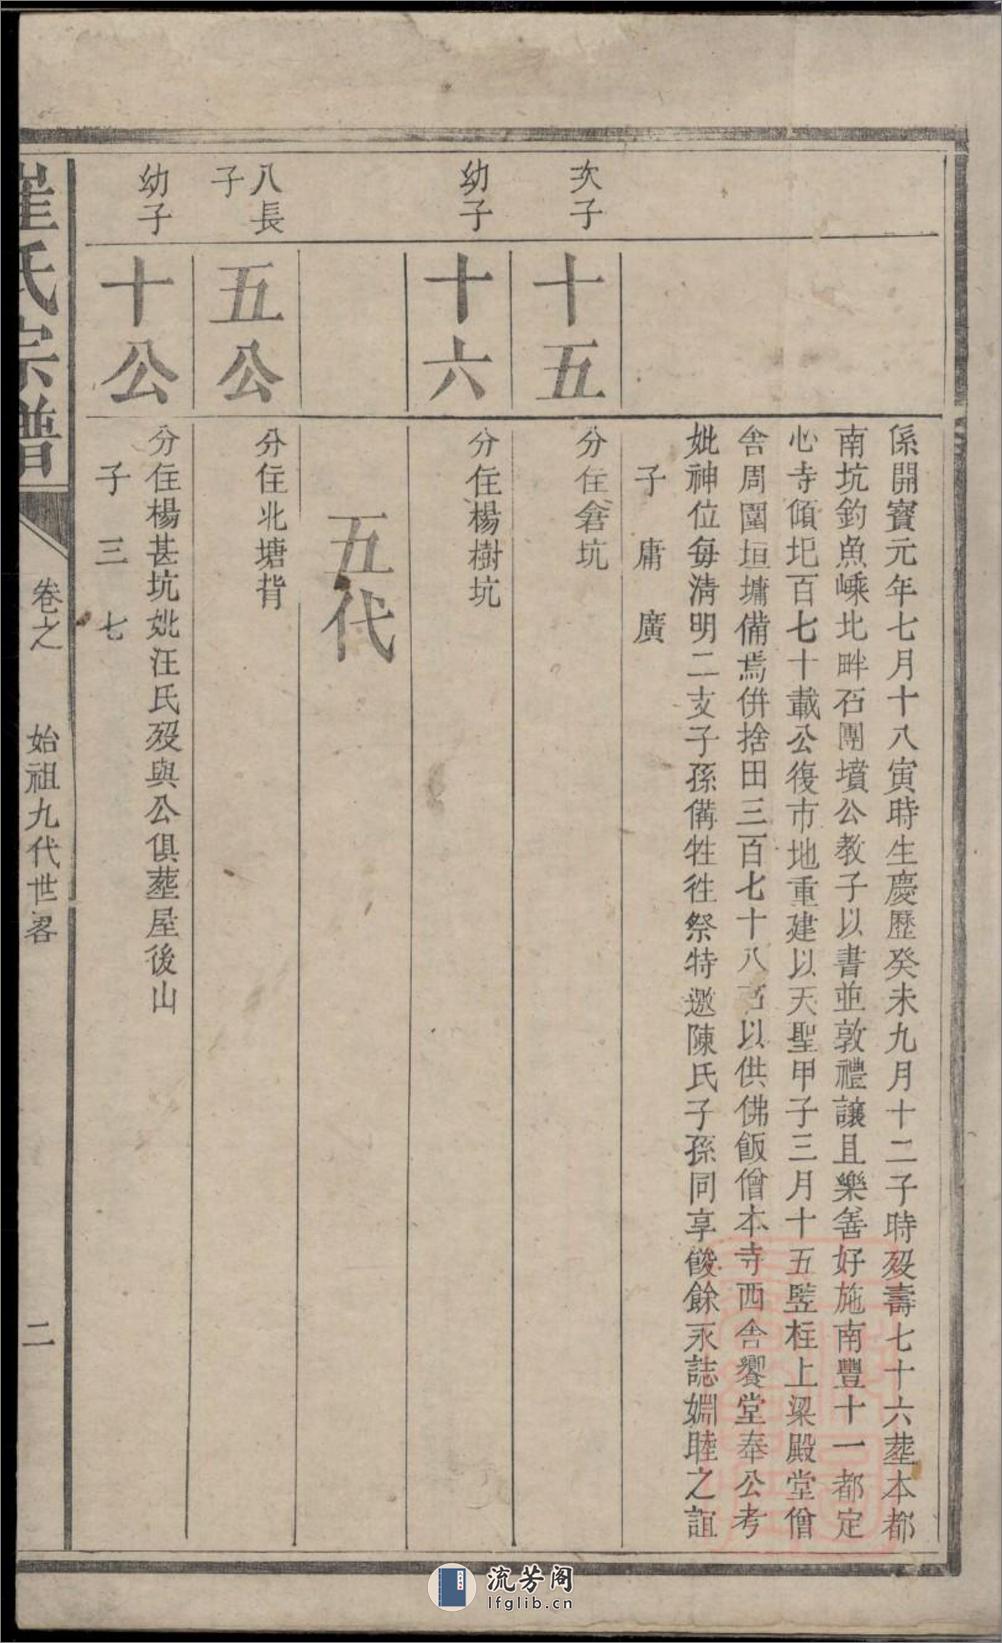 係開寶元年七月十八寅時生慶歷癸未九月十二子時歿壽七十六塟本都
南坑釣魚嵊北畔石團墳公教子以書並敦禮讓且樂善好施南豐十一都定
心寺傾圯百七十載公復市地重建以天聖甲子三月十五竪柱上梁殿堂僧
舍周圍垣墉備焉併捨田三百七十八以供佛飯僧本寺西舍饗堂奉公考
妣神位每清明二支子孫備牲徃祭特邀陳氏子孫同享餕餘永誌婣睦之誼
子 庸 廣
次子
十五
分住倉坑
幼子
十六
分住楊樹坑
五代
八長子
五公
分住北塘背
幼子
十公
分住楊甚坑妣汪氏歿與公俱塟屋後山
子 三 七
崔氏宗譜
卷之
始祖九代世畧
二
流芳阁
lfglib.cn